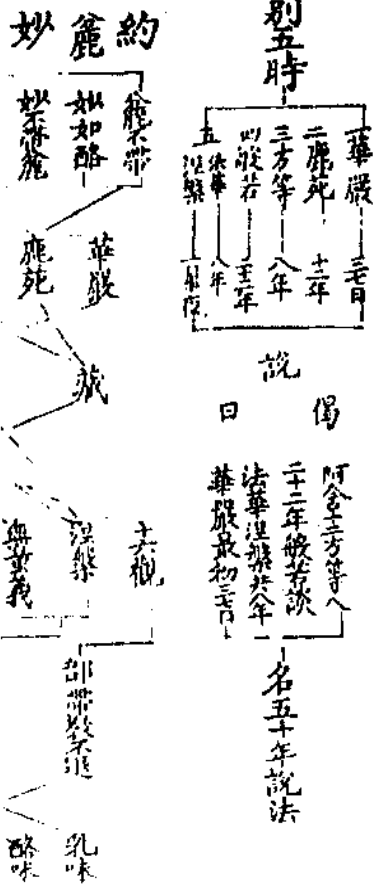 別五時
一華嚴 三七日
二鹿苑 十二年
三方等 八年
四般若 二十二年
五法華 八年
涅槃 一日夜
說
偈
曰
阿含十二方等八
二十二年般若談
法華涅槃共八年
華嚴最初三七日
名五十年說法
約
麁
妙
麁不帶
妙如酪
妙不帶麁
華嚴
鹿苑
藏
十六觀
涅槃
部帶教不進
乳味
酪味